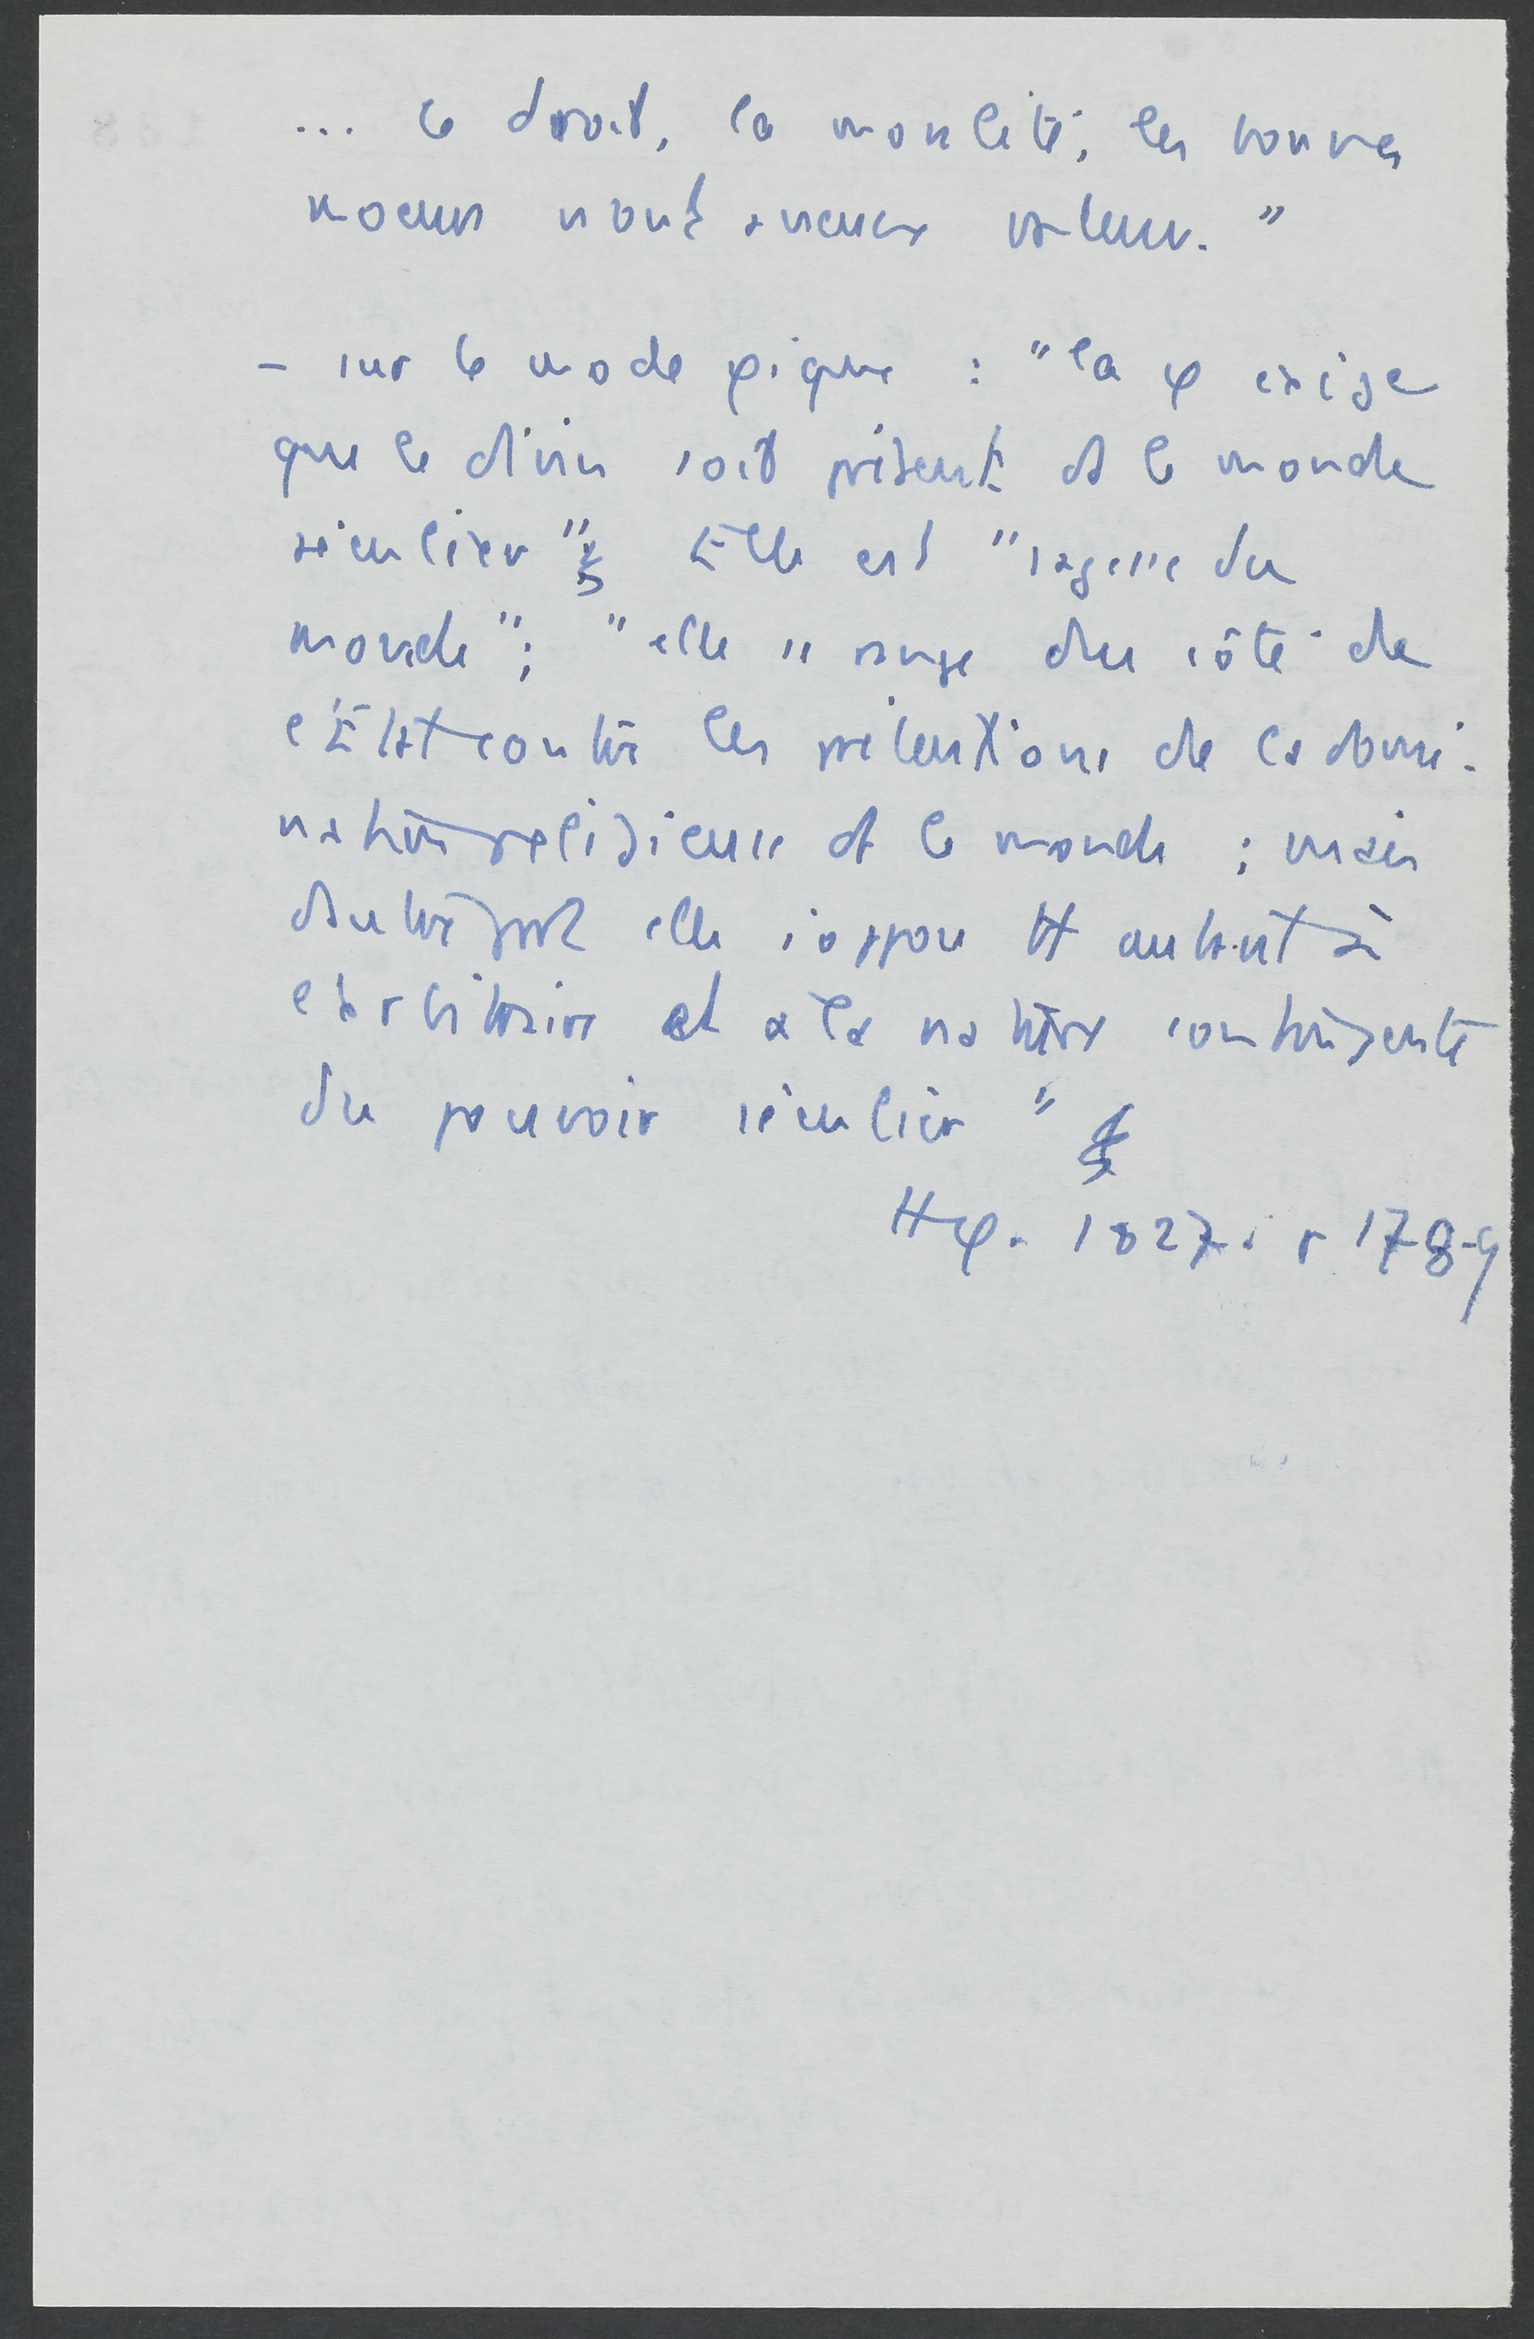 ... le droit, la moralité, les bonnes
moeurs n'ont aucune valeur."
- sur le mode φique : "la φ exige
que le divin soit présent ds le monde
séculier" Elle est "sagesse du
monde"; "elle se range du côté de
l'État contre les prétentions de la domi-
nation religieuse ds le monde ; mais
d'autre part elle s'oppose tt autant à
l'arbitraire et à la nature contingente
du pouvoir séculier"
Hφ. 1827. 178-9